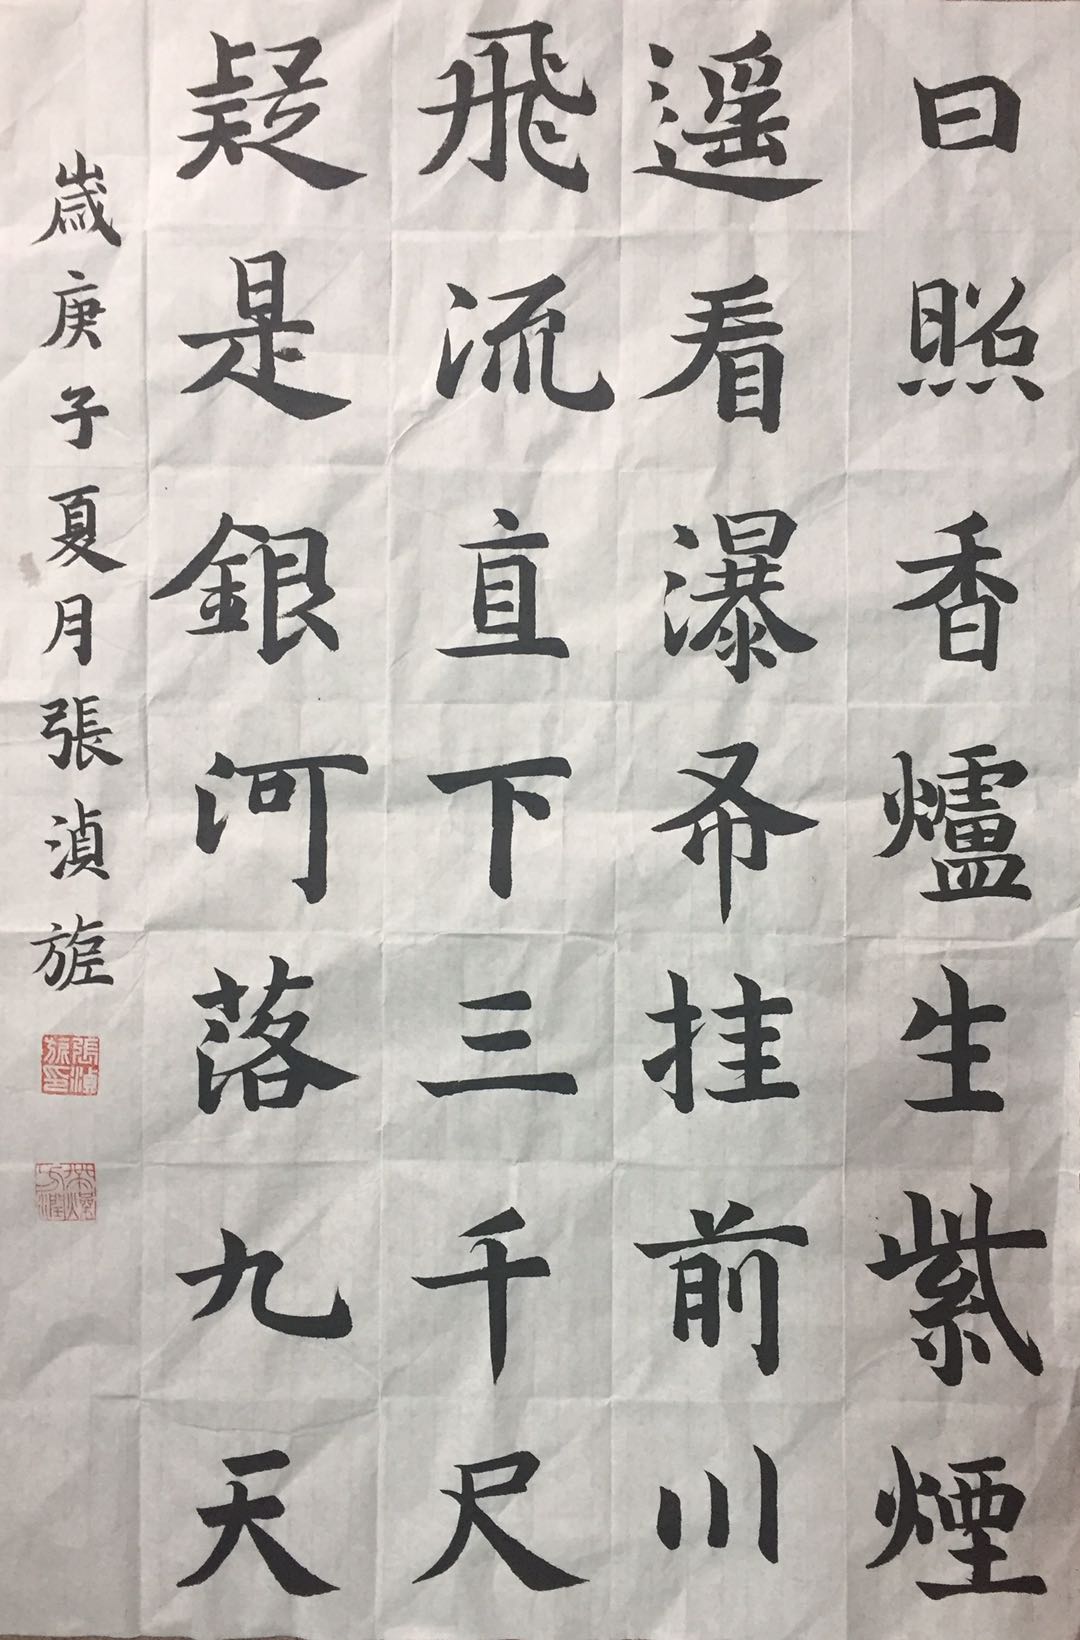 日照香爐生紫煙
遥看瀑布挂前川
飛流直下三千尺
疑是銀河落九天
歲庚子夏月張湞旋
張湞旋印